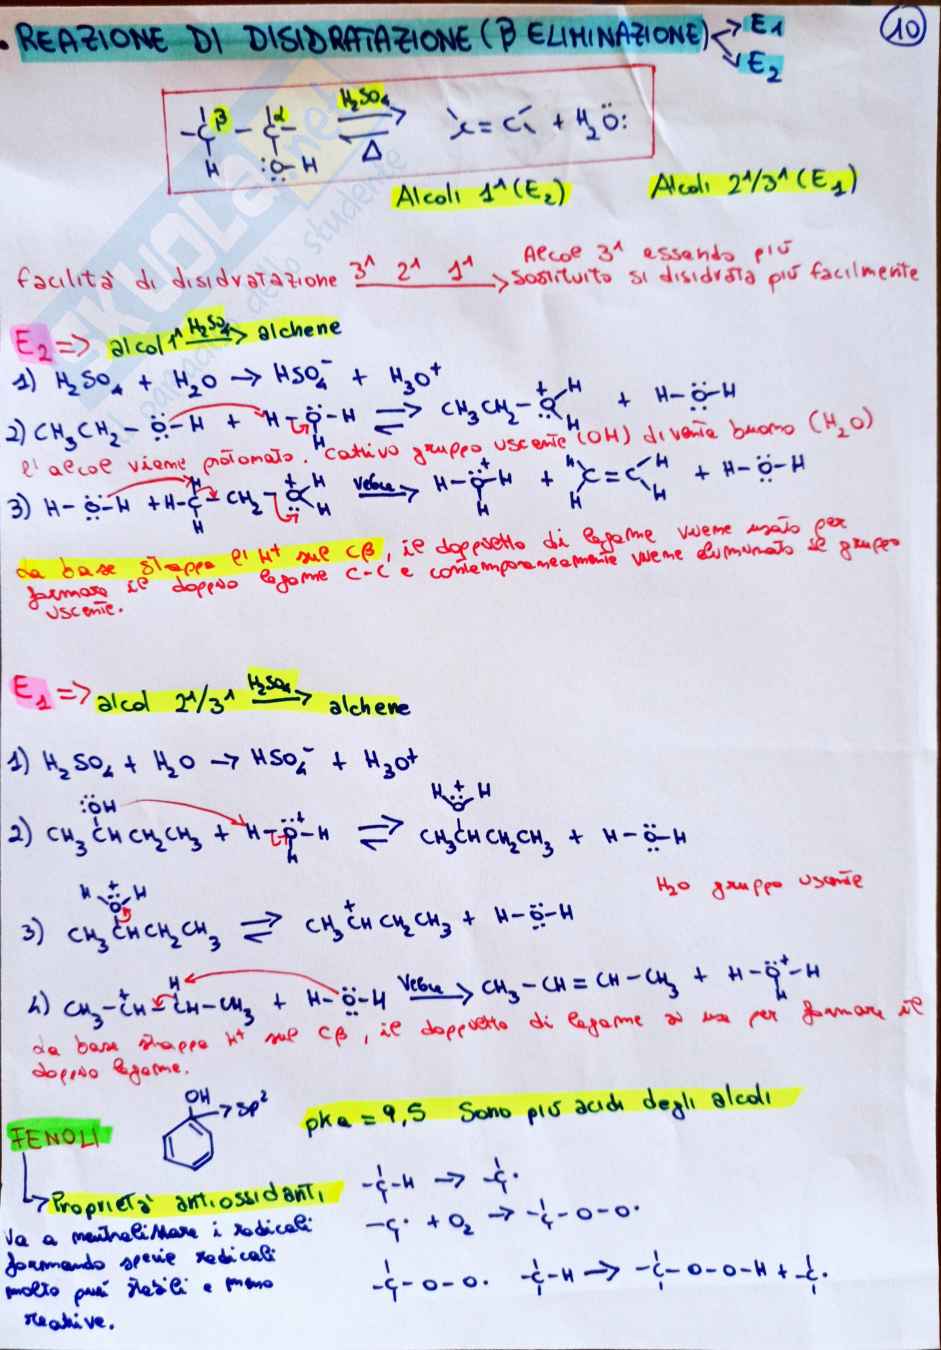 • REAZIONE DI DISIDRATAZIONE (β ELIMINAZIONE) → E1
→ E2
10
-C^β - C^α- H2SO4 ⇌ Δ C=C + H2Ö:
H :Ö-H
Alcoli 1^(E2) Alcoli 2^/3^(E1)
facilità di disidratazione 3^ 2^ 1^ → Alcol 3^ essendo più
sostituito si disidrata più facilmente
E2 => alcol 1^ H2SO4 → alchene
1) H2SO4 + H2O → HSO4- + H3O+
2) CH3CH2-Ö-H + H-O+-H ⇌ CH3CH2-O+ H H + H-Ö-H
H
l'alcol viene protonato. Cattivo gruppo uscente (OH) diventa buono (H2O)
3) H-Ö-H + H-C-CH2-O+ H H veloce → H-O+-H + H H C=C H H + H-Ö-H
la base strappa l'H+ sul Cβ, il doppietto di legame viene usato per
formare il doppio legame C-C e contemporaneamente viene eliminato il gruppo
uscente.
E1 => alcol 2^/3^ H2SO4 → alchene
1) H2SO4 + H2O → HSO4- + H3O+
2) CH3CHCH2CH3 + H-O+-H ⇌ CH3CHCH2CH3 + H-Ö-H
:ÖH H H O+ H
H2O gruppo uscente
3) CH3CHCH2CH3 ⇌ CH3C+HCH2CH3 + H-Ö-H
H O+ H
4) CH3-C+H-CH-CH3 + H-Ö-H veloce → CH3-CH=CH-CH3 + H-O+-H
H H
la base strappa H+ sul Cβ, il doppietto di legame si usa per formare il
doppio legame.
FENOLI OH → sp2 pKa = 9,5 Sono più acidi degli alcoli
↳ Proprietà antiossidanti
Va a neutralizzare i radicali
formando specie radicali
molto più stabili e meno
reattive.
-C-H → -C·
-C· + O2 → -C-O-O·
-C-O-O· -C-H → -C-O-O-H + -C·
SKUOLA.net
il paradiso dello studente